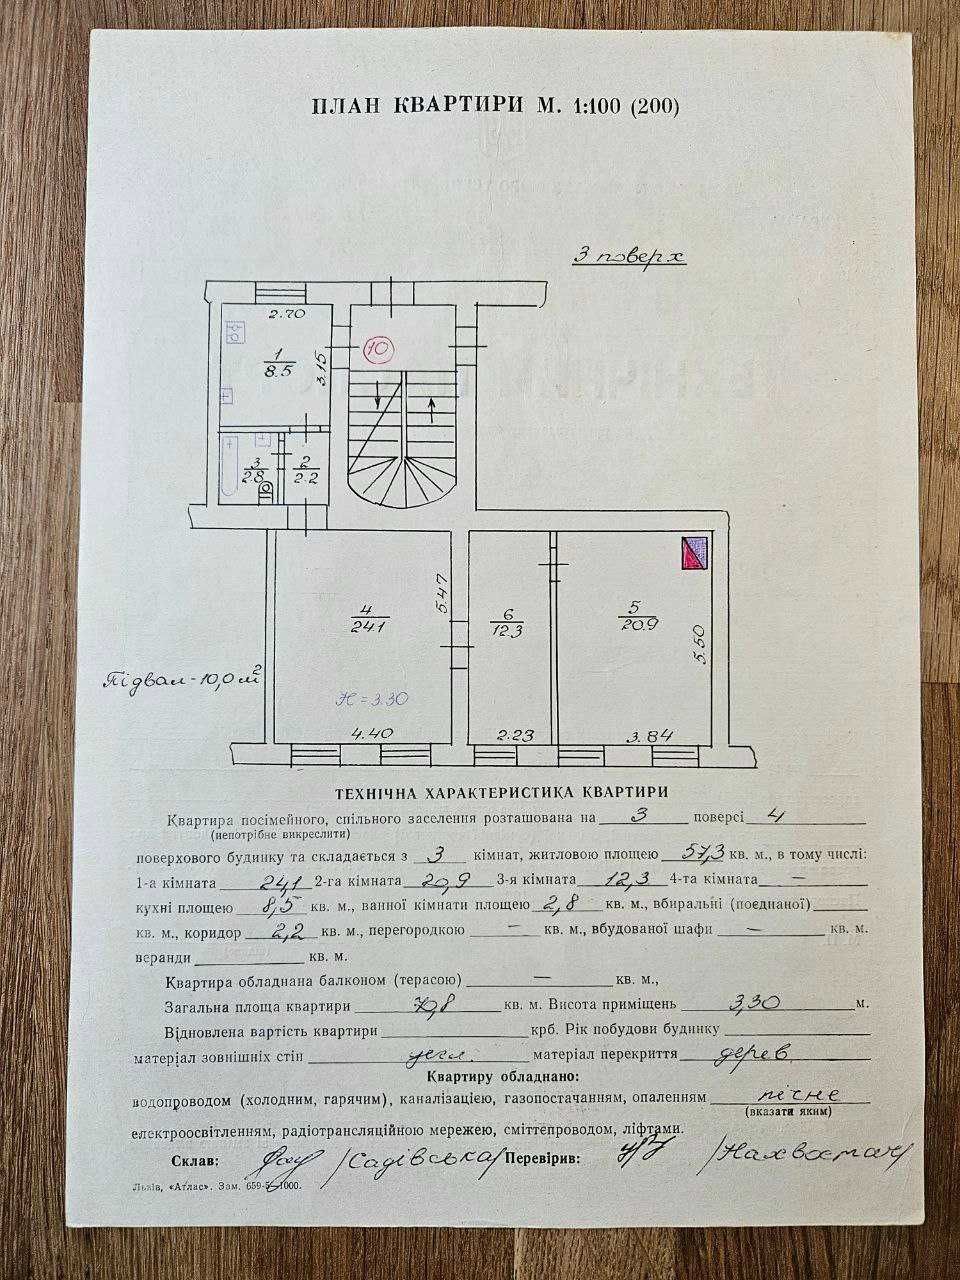 ПЛАН КВАРТИРИ М. 1:100 (200)
3 поверх
2.70
10
1
8.5
3.15
3
2.8
2
2.2
4
24.1
5.47
6
12.3
5
20.9
5.50
Підвал - 10,0 м²
H = 3.30
4.40
2.23
3.84
ТЕХНІЧНА ХАРАКТЕРИСТИКА КВАРТИРИ
Квартира посімейного, спільного заселення розташована на 3 поверсі 4
(непотрібне викреслити)
поверхового будинку та складається з 3 кімнат, житловою площею 57,3 кв. м., в тому числі:
1-а кімната 24,1 2-га кімната 20,9 3-я кімната 12,3 4-та кімната —
кухні площею 8,5 кв. м., ванної кімнати площею 2,8 кв. м., вбиральні (поєднаної)
кв. м., коридор 2,2 кв. м., перегородкою — кв. м., вбудованої шафи — кв. м.
веранди кв. м.
Квартира обладнана балконом (терасою) — кв. м.,
Загальна площа квартири 70,8 кв. м. Висота приміщень 3,30 м.
Відновлена вартість квартири крб. Рік побудови будинку
матеріал зовнішніх стін цегл. матеріал перекриття дерев.
Квартиру обладнано:
водопроводом (холодним, гарячим), каналізацією, газопостачанням, опаленням пічне
(вказати яким)
електроосвітленням, радіотрансляційною мережею, сміттєпроводом, ліфтами.
Склав: /Садівська/ Перевірив:
Львів, «Атлас». Зам. 659-5—1000.